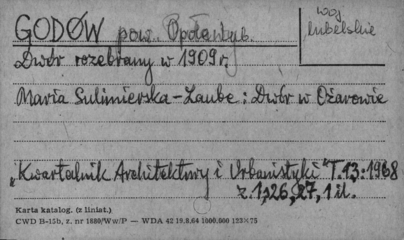 GODÓW pow. Opole Lub.
woj
lubelskie
Dwór rozebrany w 1909 r.
Maria Sulimierska-Laube: Dwór w Ożarowie
„Kwartalnik Architektury i Urbanistyki" T.13:1968
z.1, 26, 27, 1 il.
Karta katalog. (z liniat.)
CWD B-15b, z. nr 1880/Ww/P — WDA 42 19.8.64 1000.000 125×75